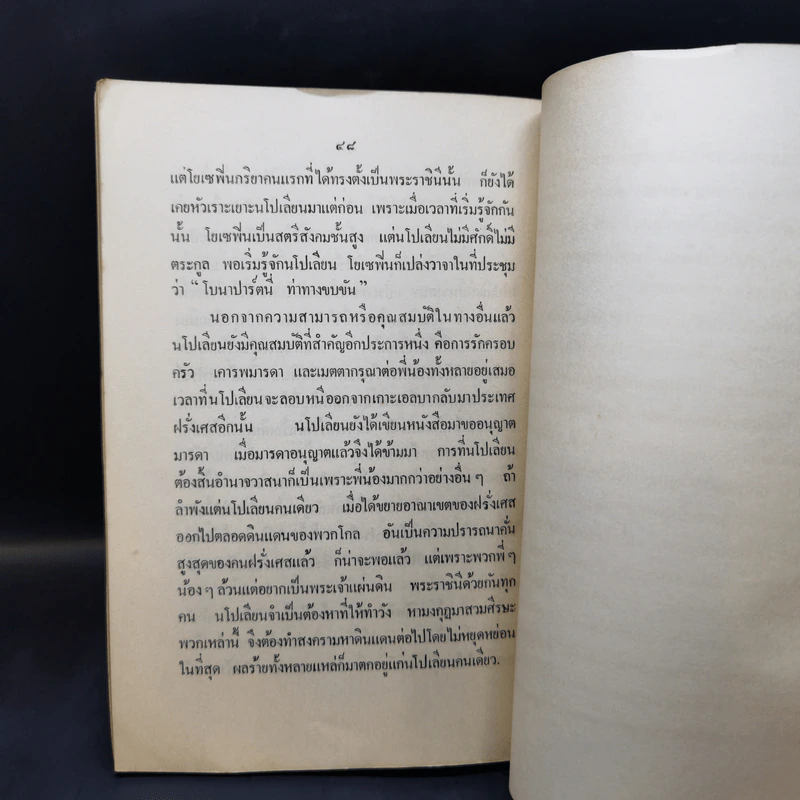 ๔๘
แต่โยเซพีนภริยาคนแรกที่ได้ทรงตั้งเป็นพระราชินีนั้น ก็ยังได้
เคยหัวเราะเยาะนโปเลียนมาแต่ก่อน เพราะเมื่อเวลาที่เริ่มรู้จักกัน
นั้น โยเซพีนเป็นสตรีสังคมชั้นสูง แต่นโปเลียนไม่มีศักดิ์ไม่มี
ตระกูล พอเริ่มรู้จักนโปเลียน โยเซพีนก็เปล่งวาจาในที่ประชุม
ว่า “ โบนาปาร์ตนี่ ท่าทางขบขัน ”
นอกจากความสามารถหรือคุณสมบัติในทางอื่นแล้ว
นโปเลียนยังมีคุณสมบัติที่สำคัญอีกประการหนึ่ง คือการรักครอบ
ครัว เคารพมารดา และเมตตากรุณาต่อพี่น้องทั้งหลายอยู่เสมอ
เวลาที่นโปเลียนจะลอบหนีออกจากเกาะเอลบากลับมาประเทศ
ฝรั่งเศสอีกนั้น นโปเลียนยังได้เขียนหนังสือมาขออนุญาต
มารดา เมื่อมารดาอนุญาตแล้วจึงได้ข้ามมา การที่นโปเลียน
ต้องสิ้นอำนาจวาสนาก็เป็นเพราะพี่น้องมากกว่าอย่างอื่น ๆ ถ้า
ลำพังแต่นโปเลียนคนเดียว เมื่อได้ขยายอาณาเขตของฝรั่งเศส
ออกไปตลอดดินแดนของพวกโกล อันเป็นความปรารถนาคั่น
สูงสุดของคนฝรั่งเศสแล้ว ก็น่าจะพอแล้ว แต่เพราะพวกพี่ๆ
น้อง ๆ ล้วนแต่อยากเป็นพระเจ้าแผ่นดิน พระราชินีด้วยกันทุก
คน นโปเลียนจำเป็นต้องหาที่ให้ทำวัง หามงกุฎมาสวมศีรษะ
พวกเหล่านี้ จึงต้องทำสงครามหาดินแดนต่อไปโดยไม่หยุดหย่อน
ในที่สุด ผลร้ายทั้งหลายแหล่ก็มาตกอยู่แก่นโปเลียนคนเดียว.